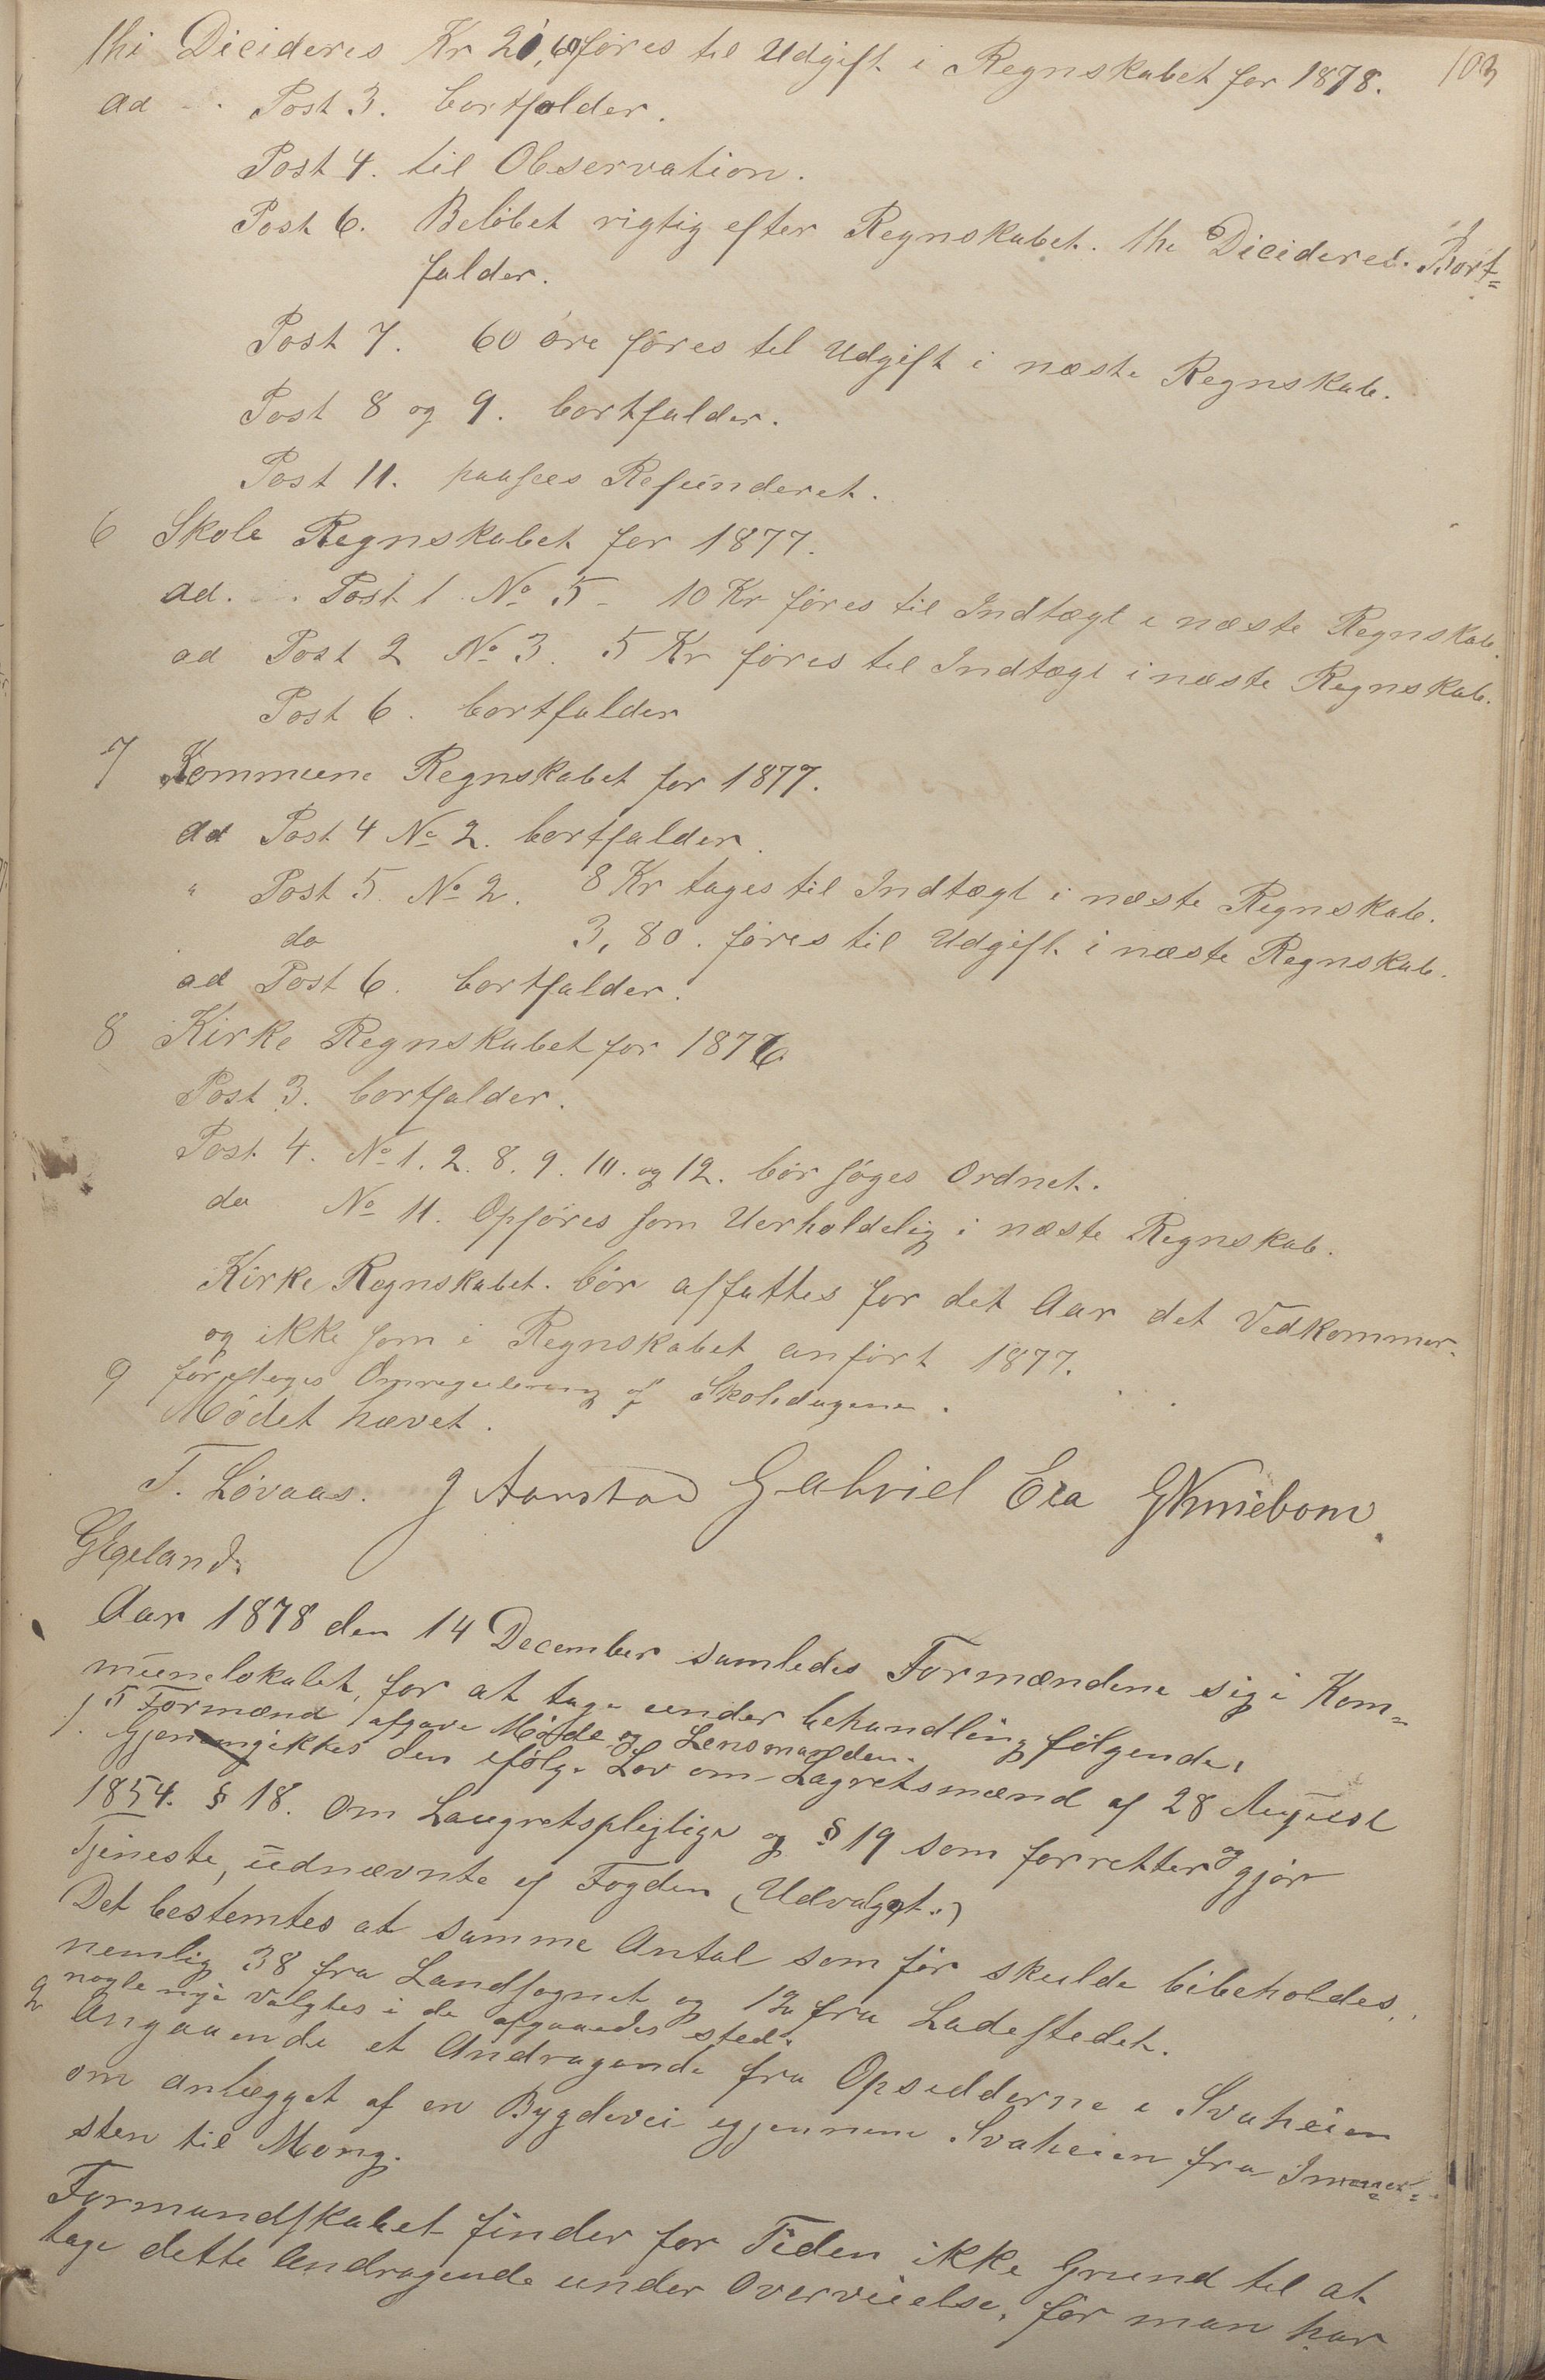 103
thi Dicideres Kr 21,60 föres til Udgift i Regnskabet for 1878.
ad Post 3. bortfalder.
Post 4. til Observation.
Post 6. Belöbet rigtig efter Regnskabet. thi Dicideres. Bort=
falder.
Post 7. 60 öre föres til Udgift i næste Regnskab.
Post 8 og 9. bortfalder.
Post 11. paasees Refunderet.
6 Skole Regnskabet for 1877.
ad. Post 1 No 5 - 10 Kr föres til Indtægt i næste Regnskab.
ad Post 2 No 3. 5 Kr föres til Indtægt i næste Regnskab.
Post 6. bortfalder
7 Kommune Regnskabet for 1877.
ad Post 4 No 2. bortfalder.
" Post 5. No 2. 8 Kr tages til Indtægt i næste Regnskab.
do 3,80. föres til Udgift i næste Regnskab.
ad Post 6. bortfalder.
8 Kirke Regnskabet for 1876
Post 3. bortfalder.
Post 4. No 1. 2. 8. 9. 10. og 12. bör söges Ordnet.
do No 11. Opföres som Uerholdelig i næste Regnskab.
Kirke Regnskabet bör affattes for det Aar det Vedkommer.
og ikke som i Regnskabet anfört 1877.
9 foretoges Omregulering af Skoledagene.
Mödet hævet.
T. Lövaas. J Aarstad Gabriel Eia
GEgeland.
Aar 1878 den 14 December samledes Formændene sig i Kom=
munelokalet, for at tage under behandling fölgende:
5 Formænd afgave Möde og Lensmanden.
1. Gjennemgikkes den ifölge Lov om Lagretsmænd af 28 August
1854. § 18. Om Laugretspligtige og § 19 som forretter og gjör
Tjeneste, udnævnte af Fogden (Udvalgt.)
Det bestemtes at samme Antal som för skulde bibeholdes,
nemlig 38 fra Landsognet og 12 fra Ladestedet.
nogle nye valgtes i de afgaaedes sted.
2 Angaaende et Andragende fra Opsidderne i Svaheien
om anlægget af en Bygdevei igjennem Svaheien fra
sten til Mong.
Formandskabet finder for Tiden ikke Grund til at
tage dette Andragende under Overveielse, för man har